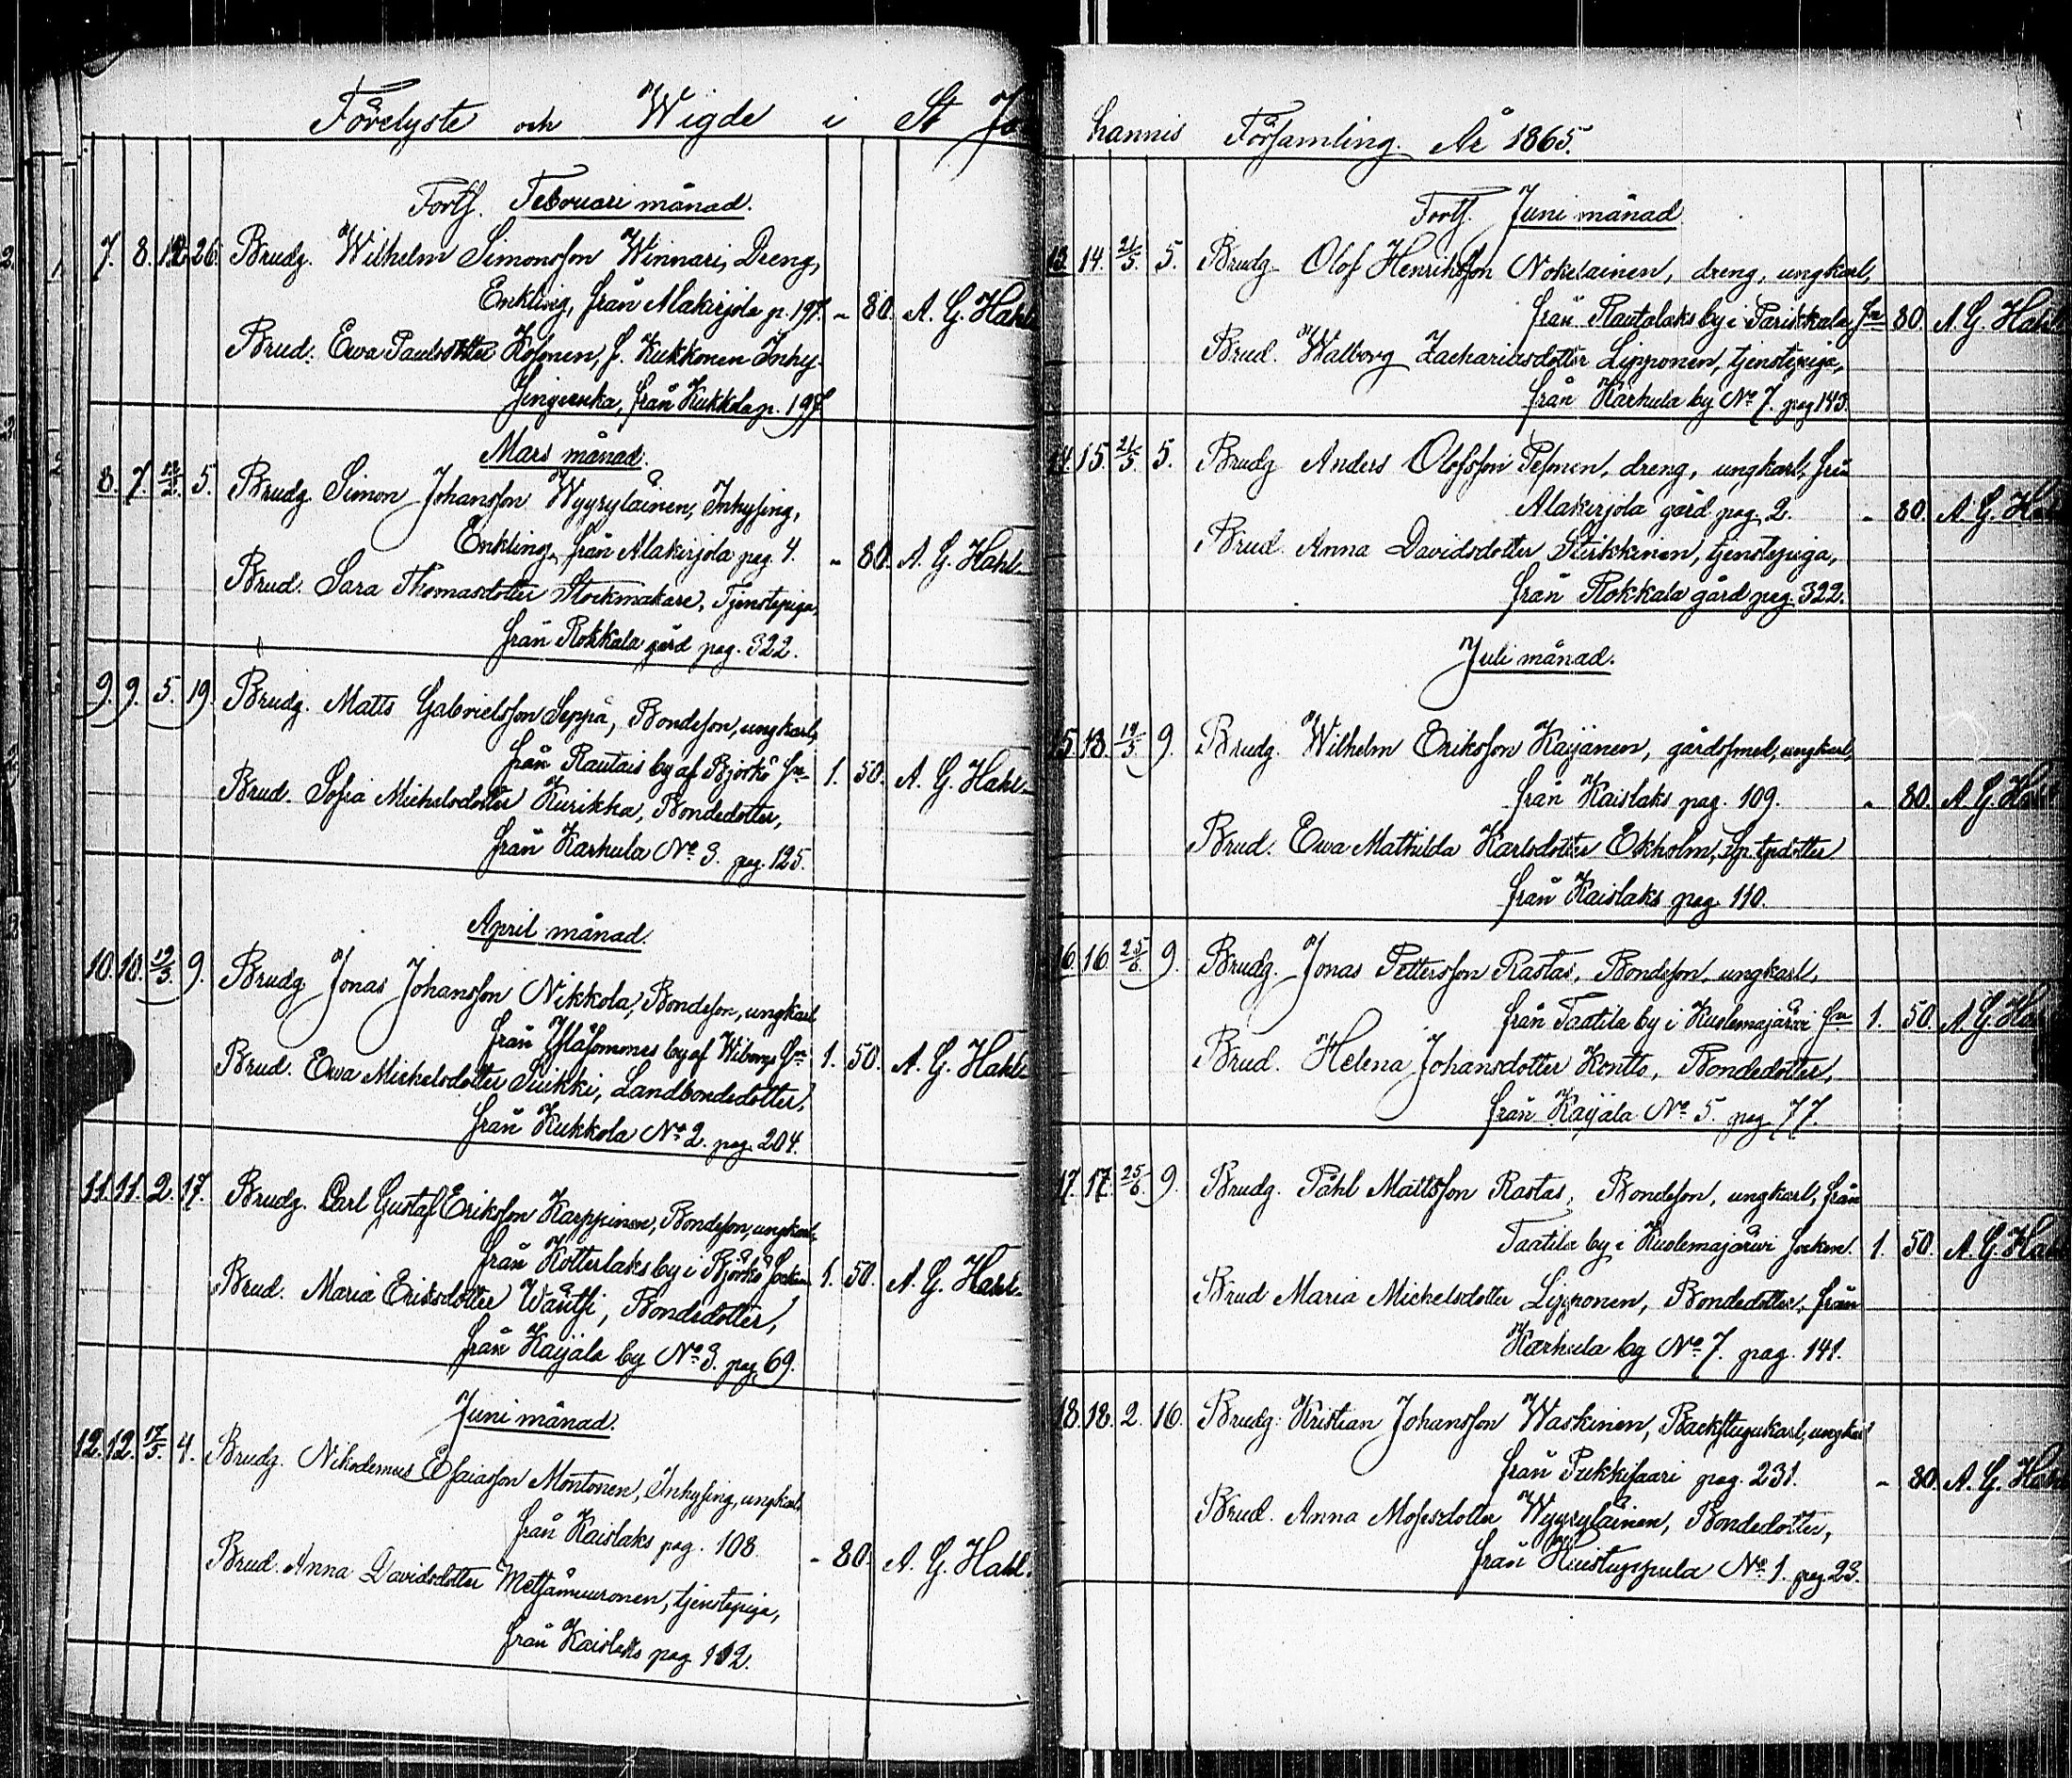 Förelyste och Wigde i St Jo
Fortf. Februari månad.
7. 8. 12. 26. Brudg. Wilhelm Simonsson Winnari, Dreng,
Enkling, från Alakirjola p. 197. - 80. A. G. Hahl
Brud. Ewa Paulsdotter Kosonen, f. Kukkonen Inhy-
singeenka, från Kukkola p. 197
Mars månad.
8. 7. 12/2. 5. Brudg. Simon Johansson Wyyryläinen, Inhysing,
Enkling, från Alakirjola pag. 4. - 80. A. G. Hahl
Brud. Sara Thomasdotter Stockmakare, Tjenstepiga,
från Rokkala gård pag. 322.
9. 9. 5. 19. Brudg. Matts Gabrielsson Seppä, Bondeson, ungkarl,
från Rautais by af Björkö Sn 1. 50. A. G. Hahl
Brud. Sofia Michelsdotter Kurikka, Bondedotter,
från Karhula No 3. pag. 125.
April månad.
10. 10. 19/3. 9. Brudg. Jonas Johansson Nikkola, Bondeson, ungkarl
från Yläsommes by af Wiborgs Sn 1. 50. A. G. Hahl
Brud. Ewa Michelsdotter Suikki, Landbondedotter,
från Kukkola No 2. pag. 204.
11. 11. 2. 17. Brudg. Carl Gustaf Eriksson Karppinen, Bondeson, ungkarl,
från Kotterlaks by i Björkö Socken 1. 50. A. G. Hahl
Brud. Maria Eriksdotter Wäntsi, Bondedotter,
från Kaijala by No 3. pag. 69.
Juni månad.
12. 12. 17/5. 4. Brudg. Nikodemus Esaiasson Montonen, Inhysing, ungkarl.
från Kaislaks pag. 108. - 80. A. G. Hahl.
Brud. Anna Davidsdotter Metsämuuronen, tjenstepiga,
från Kaislaks pag. 112.
hannis Församling. År 1865.
Fortf. Juni månad
13. 14. 21/5. 5. Brudg. Olof Henriksson Nokelainen, dreng, ungkarl,
från Rautalaks by i Parikkala Sn 80. A. G. Hahl
Brud. Walborg Zachariasdotter Lipponen, tjenstepiga,
från Karhula by No 7. pag 143.
14. 15. 21/5. 5. Brudg Anders Olofsson Pesonen, dreng, ungkarl, från
Alakirjola gård pag. 2. - 80. A. G. Ha
Brud. Anna Davidsdotter Stirkkinen, tjenstepiga,
från Rokkala gård pag. 322.
Juli månad.
15. 13. 19/3. 9. Brudg. Wilhelm Eriksson Kaijanen, gårdssmed, ungkarl,
från Kaislaks pag. 109. - 80. A. G. Hahl
Brud. Ewa Mathilda Karlsdotter Ekholm,
från Kaislaks pag. 110.
16. 16. 25/6. 9. Brudg. Jonas Pettersson Rastas, Bondeson, ungkarl,
från Taatila by i Kuolemajärwi Sn 1. 50. A. G. Ha
Brud. Helena Johansdotter Kontto, Bondedotter,
från Kaijala No 5. pag. 77.
17. 17. 25/6. 9. Brudg. Påhl Mattsson Rastas, Bondeson, ungkarl, från
Taatila by i Kuolemajärwi Socken. 1. 50. A. G. Hahl
Brud Maria Michelsdotter Lipponen, Bondedotter, från
Karhula by No 7. pag. 141.
18. 18. 2. 16. Brudg: Kristian Johansson Waskinen, Backstugukarl, ungkarl
från Pukkisaari pag. 231. - 80. A. G. Hahl
Brud. Anna Mosesdotter Wyyryläinen, Bondedotter,
från Huistuppula No 1. pag. 23.